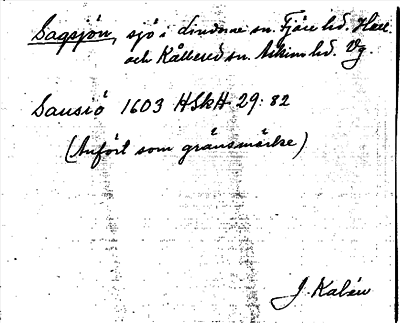 Sagsjön, sjö i Lindome sn. Fjäre hd. Hall.
och Kållered sn. Askim hd. Vg.
Sausiö 1603 HSkH 29: 82
(Anfört som gränsmärke)
J. Kalén